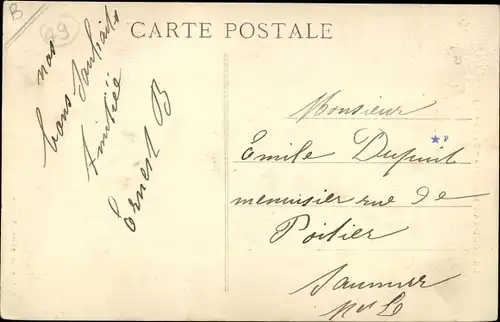 B
89
CARTE POSTALE
nos
bons Souhaits
Amitiée
Ernest B
Monsieur
Emile Dupuit
menuisier rue de
Poitier
Saumur